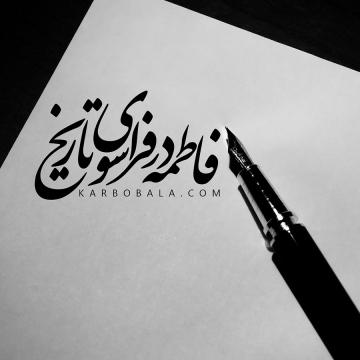 فاطمه در فراسوی تاریخ
KARBOBALA.COM